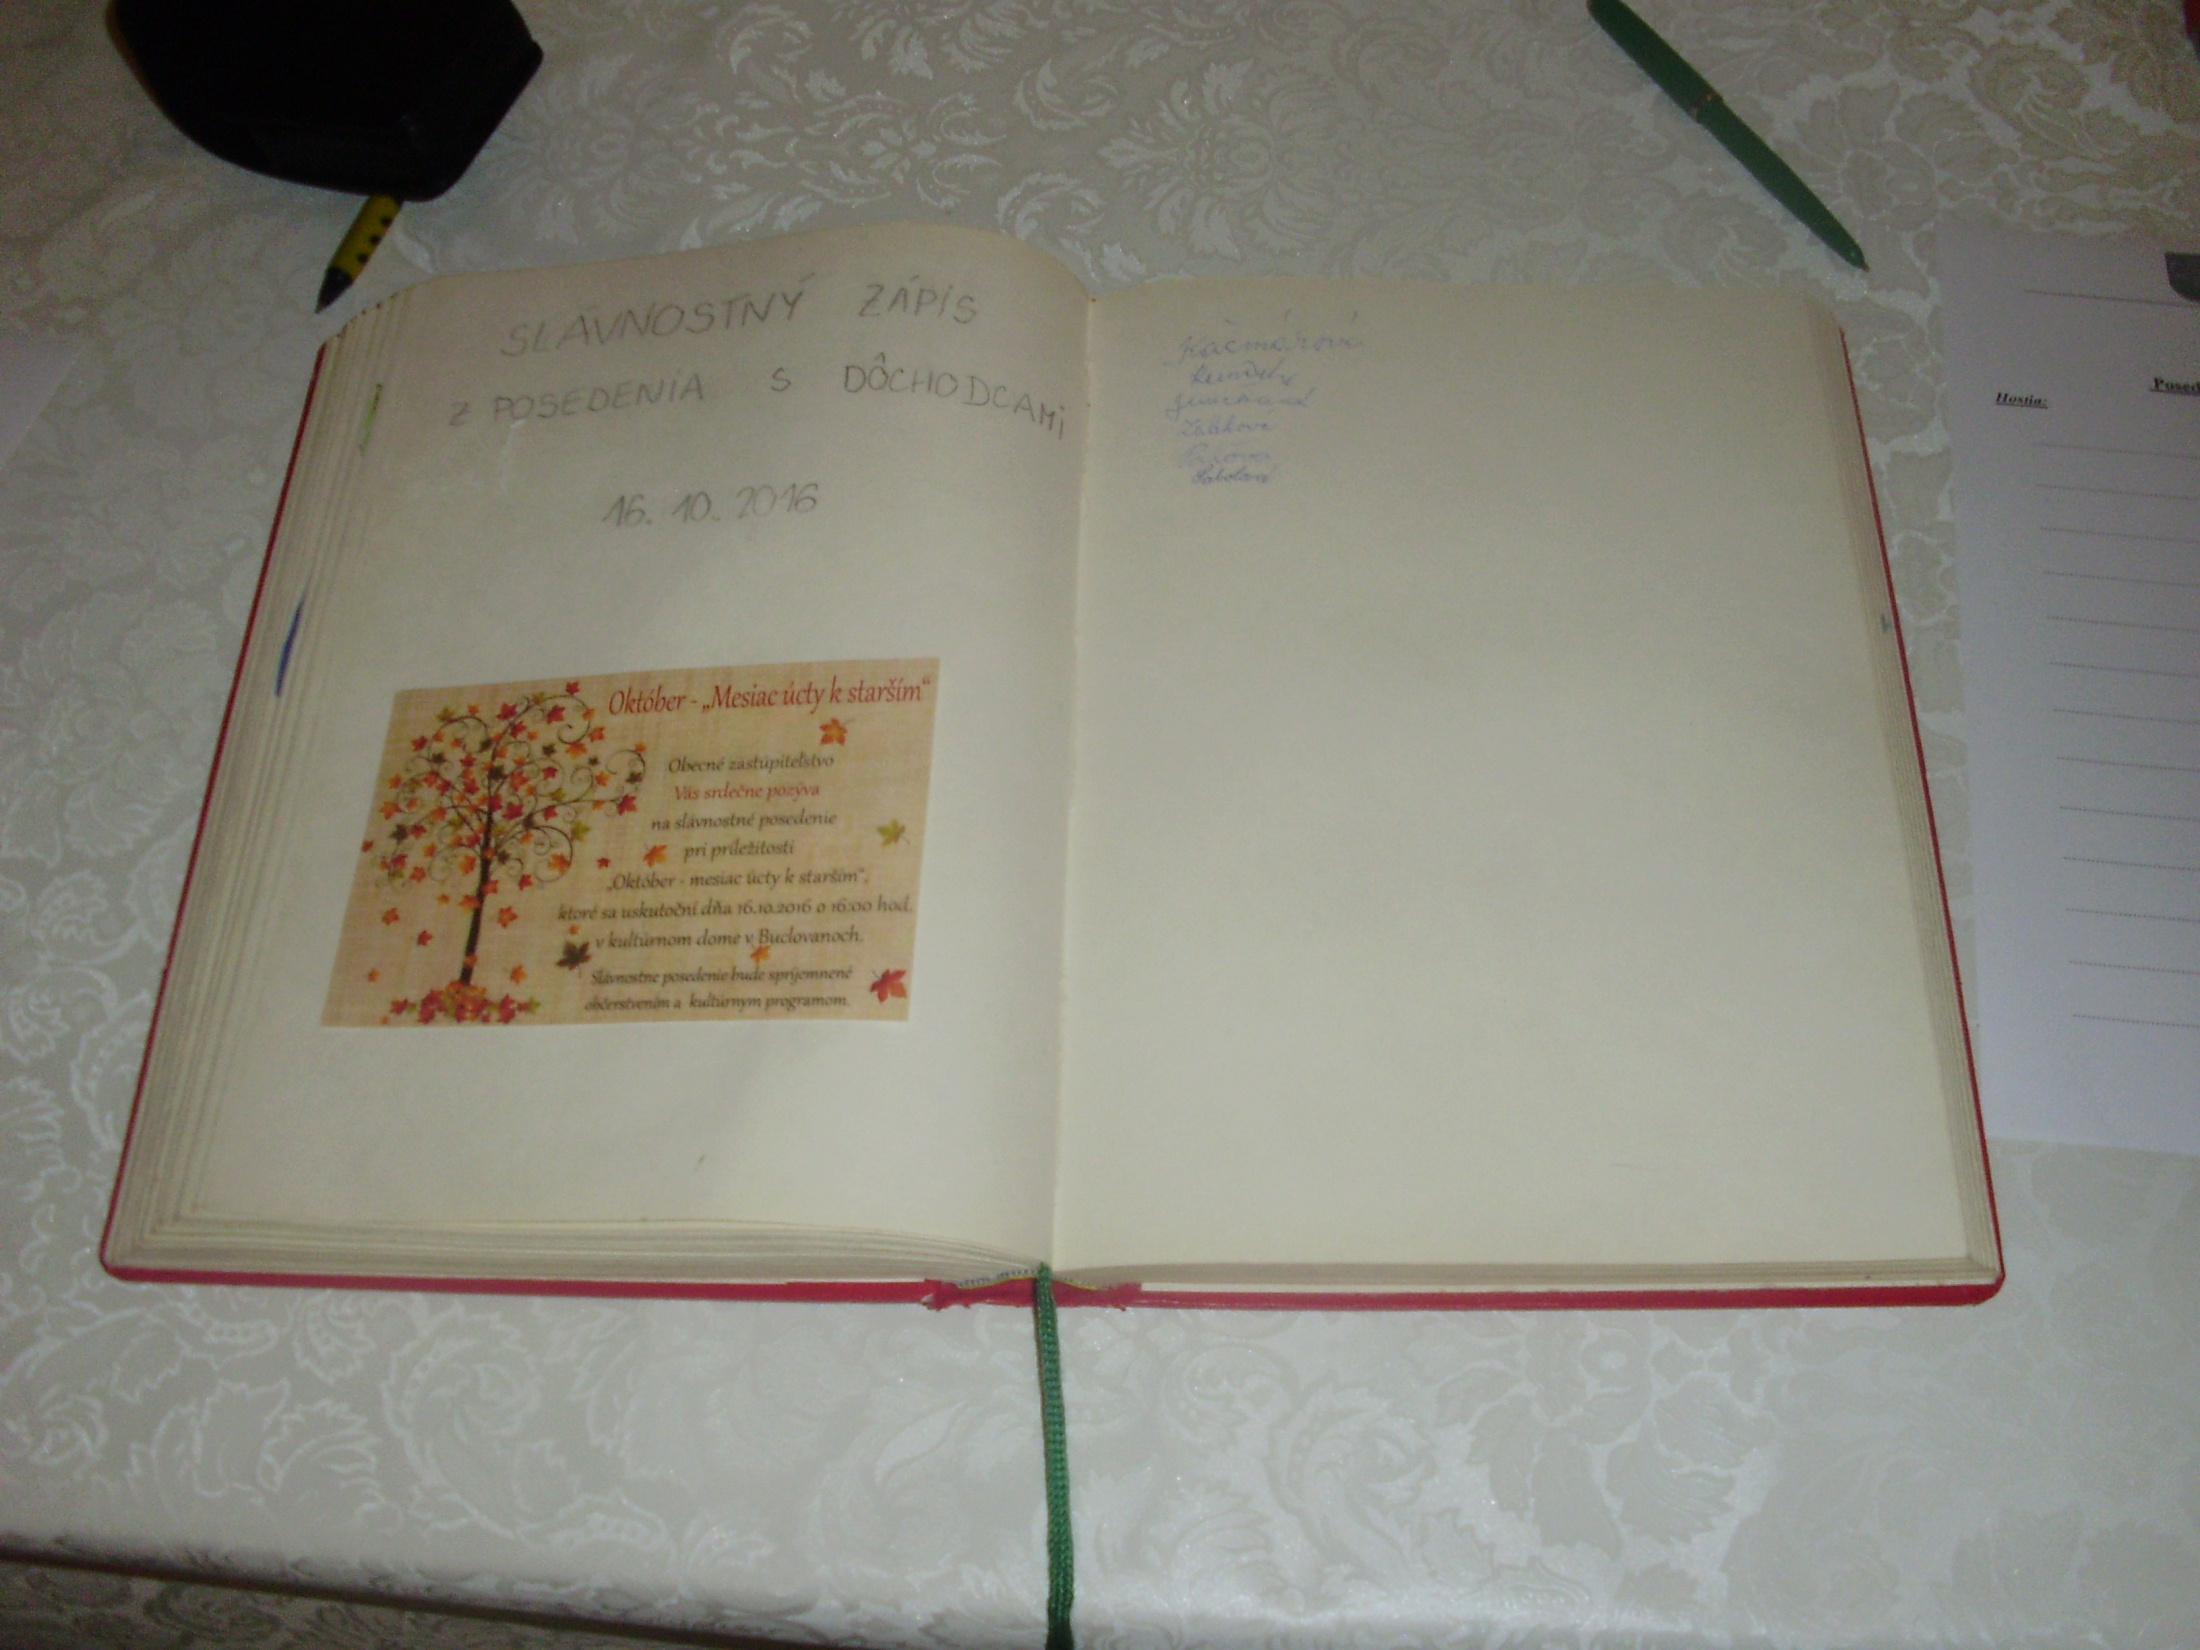 SLÁVNOSTNÝ ZÁPIS
Z POSEDENIA S DÔCHODCAMI
16. 10. 2016
Október - „Mesiac úcty k starším“
Obecné zastupiteľstvo
Vás srdečne pozýva
na slávnostné posedenie
pri príležitosti
„Október - mesiac úcty k starším“,
ktoré sa uskutoční dňa 16.10.2016 o 16:00 hod.
v kultúrnom dome v Buclovanoch.
Slávnostné posedenie bude spríjemnené
občerstvením a kultúrnym programom.
Kačmárová
Sabolová
Posed
Hostia: